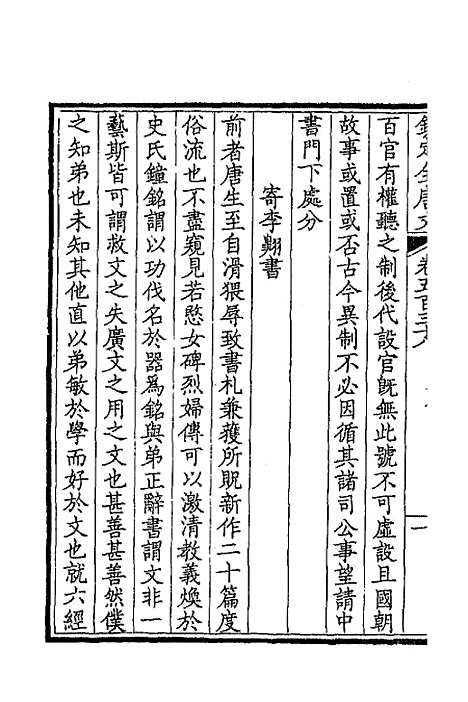 欽定全唐文
卷五百三十八
一
百官有權聽之制後代設官旣無此號不可虛設且國朝
故事或置或否古今異制不必因循其諸司公事望請中
書門下處分
寄李翺書
前者唐生至自滑猥辱致書札兼獲所貺新作二十篇度
俗流也不盡窺見若愍女碑烈婦傳可以激清教義煥於
史氏鐘銘謂以功伐名於器爲銘與弟正辭書謂文非一
藝斯皆可謂救文之失廣文之用之文也甚善甚善然僕
之知弟也未知其他直以弟敏於學而好於文也就六經